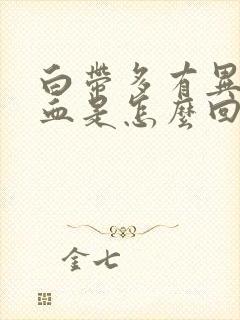 白帶多有異
血是怎麼回
金七